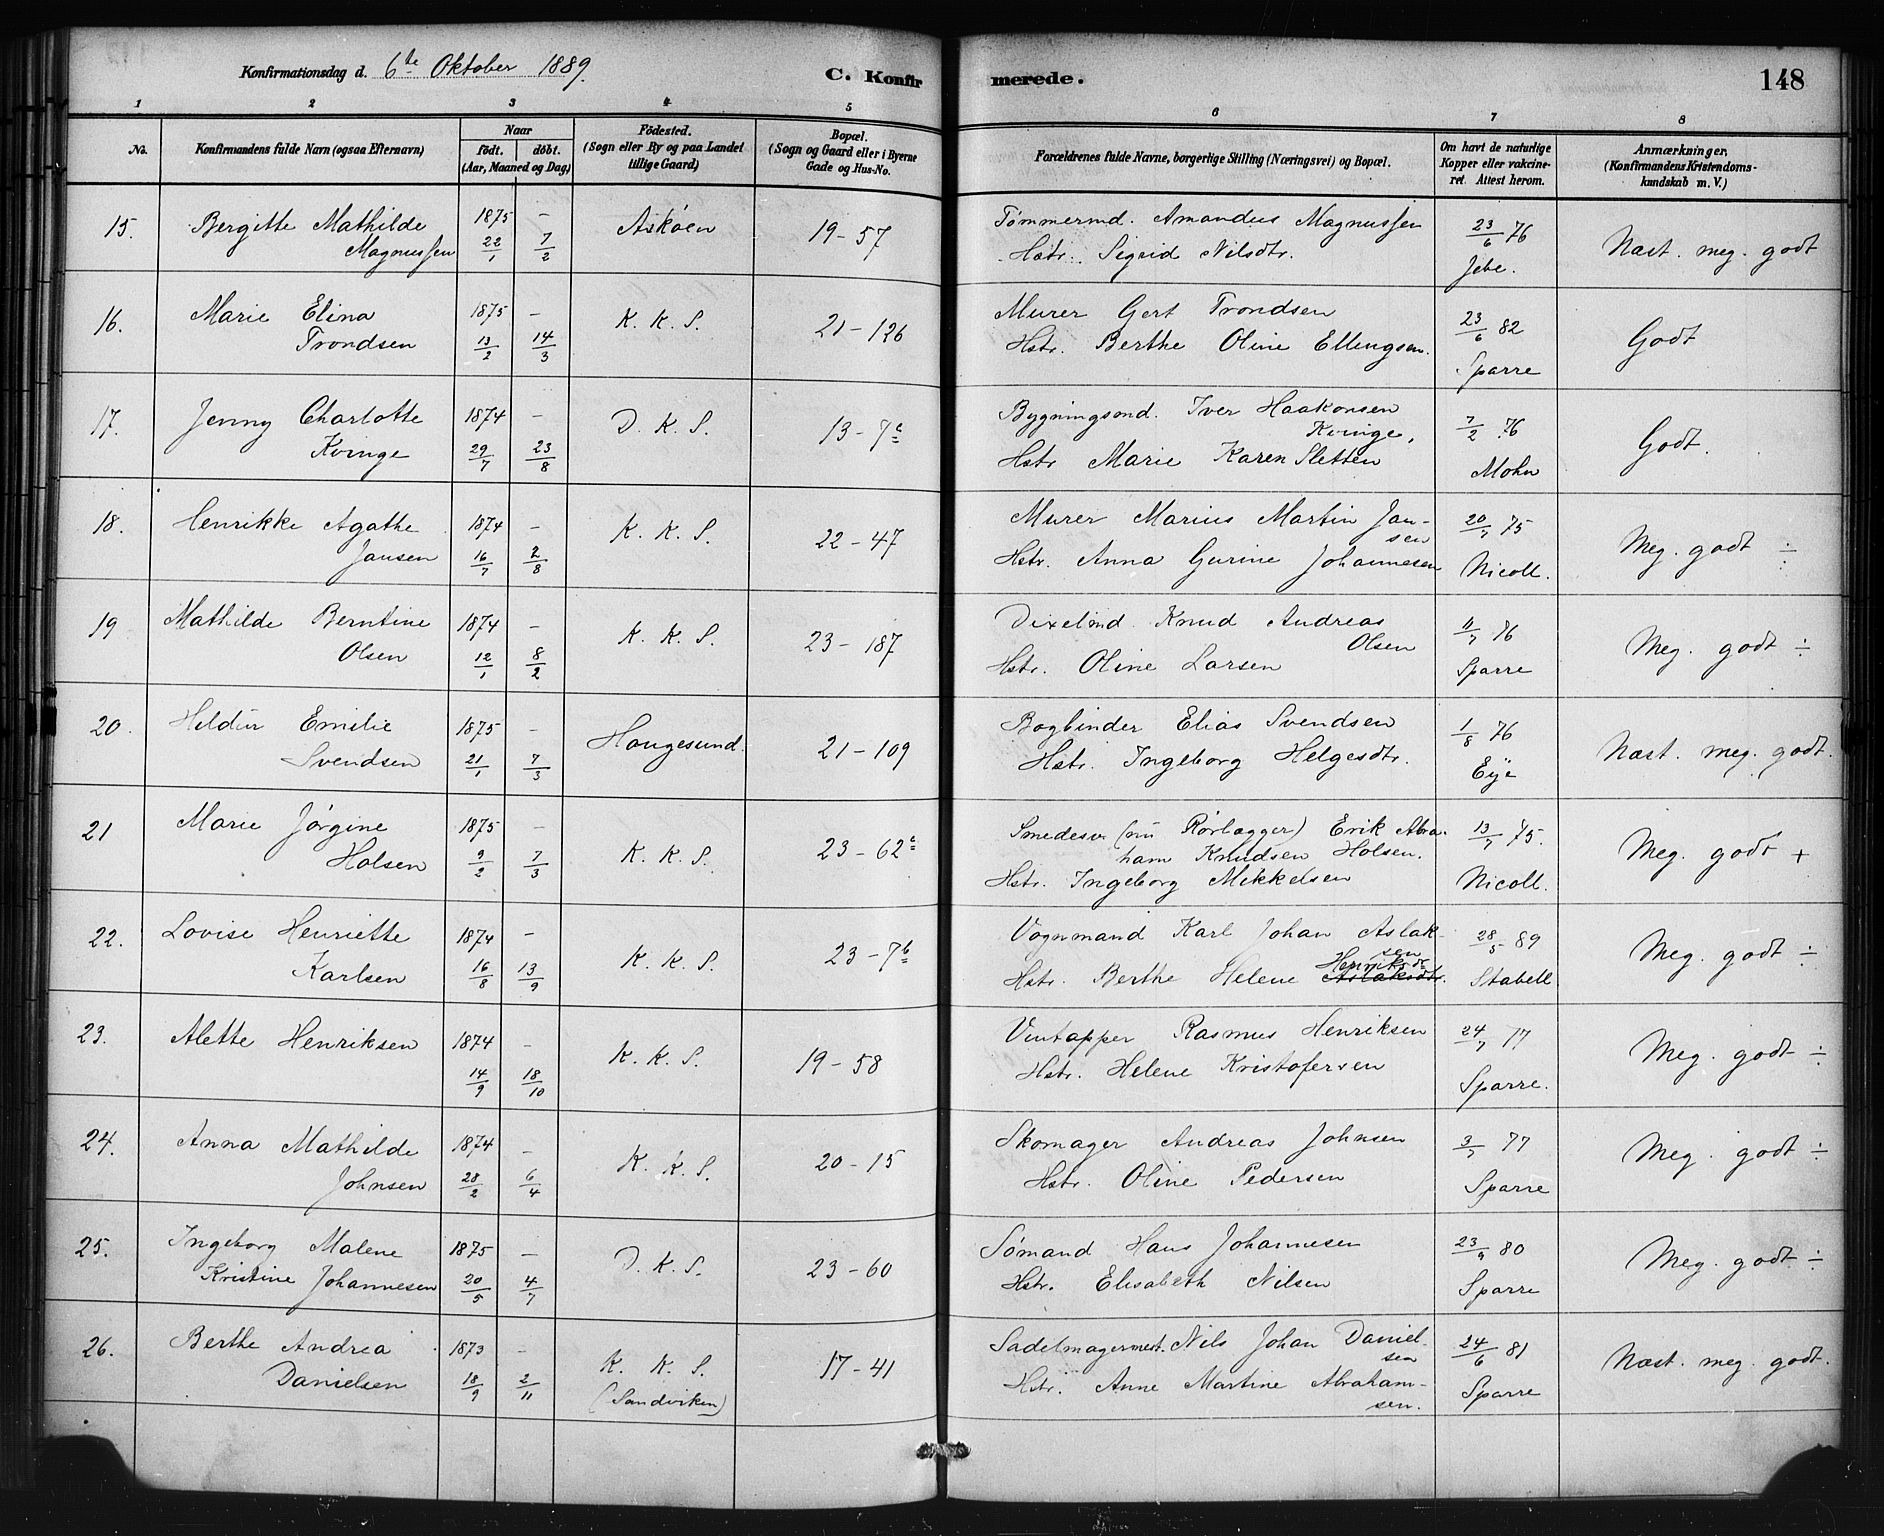 Konfirmationsdag d. 6te Oktober 1889.
C. Konfirmerede.
148
1 2 3 4 5 6 7 8
No.
Konfirmandens fulde Navn (ogsaa Efternavn)
Naar
födt. döbt.
(Aar, Maaned og Dag)
Födested.
(Sogn eller By og paa Landet
tillige Gaard)
Bopæl.
(Sogn og Gaard eller i Byerne
Gade og Hus-No.
Forældrenes fulde Navne, borgerlige Stilling (Næringsvei) og Bopæl.
Om havt de naturlige
Kopper eller vakcine-
ret. Attest herom.
Anmærkninger,
(Konfirmandens Kristendoms-
kundskab m. V.)
15. Bergitte Mathilde 1875 – Askøen 19-57 Tømmermd. Amandus Magnussen 23/6 76 Næst. meg. godt
Magnussen 22/1 7/2 Hstr. Sigrid Nilsdtr. Jebe.
16. Marie Elina 1875 – K. K. S. 21-126 Murer Gert Trondsen 23/6 82 Godt
Trondsen 13/2 14/3 Hstr. Berthe Oline Ellingsen. Sparre
17. Jenny Charlotte 1874 – D. K. S. 13-7c Bygningsmd. Iver Haakonsen 7/2 76 Godt.
Kvinge 29/7 23/8 Kvinge,
Hstr Marie Karen Sletten Mohn
18. Henrikke Agathe 1874 – K. K. S. 22-47 Murer Marius Martin Jan- 20/7 75 Meg. godt ÷
Jansen 16/7 2/8 sen
Hstr. Anna Gurine Johannesen Nicoll.
19 Mathilde Berntine 1874 – K. K. S. 23-187 Dixelmd Knud Andreas 11/7 76 Meg. godt ÷
Olsen 12/1 8/2 Olsen
Hstr. Oline Larsen Sparre
20. Hildur Emilie 1875 – Haugesund. 21-109 Bogbinder Elias Svendsen 1/8 76 Næst. meg. godt.
Svendsen 21/1 7/3 Hstr. Ingeborg Helgesdtr. Eije
21 Marie Jørgine 1875 – K. K. S. 23-62c Smedesv. (nu Rørlægger) Erik Abra- 13/7 75. Meg. godt +
Holsen 9/2 7/3 ham Knudsen Holsen.
Hstr. Ingeborg Mikkelsen Nicoll.
22. Lovise Henriette 1874 – K. K. S. 23-7b Vognmand Karl Johan Aslak- 28/5 89 Meg. godt ÷
Karlsen 16/8 13/9 sen
Henriksdr
Hstr. Berthe Helene Aslaksdtr. Stabell
23. Alette Henriksen 1874 – K. K. S. 19-58 Vintapper Rasmus Henriksen 24/7 77 Meg. godt ÷
14/9 18/10 Hstr. Helene Kristofersen Sparre.
24. Anna Mathilde 1874 – K. K. S. 20-15 Skomager Andreas Johnsen 3/7 77 Meg. godt ÷
Johnsen 28/2 6/4 Hstr. Oline Pedersen Sparre
25. Ingeborg Malene 1875 – D. K. S. 23-60 Sømand Hans Johannesen 23/9 80 Meg. godt ÷
Kristine Johannesen 20/5 4/7 Hstr. Elisabeth Nilsen Sparre
26. Berthe Andrea 1873 – K. K. S. 17-41 Sadelmagermest. Nils Johan Daniel- 24/6 81 Næst. meg. godt.
Danielsen 18/9 2/11 (Sandviken) sen
Hstr. Anne Martine Abraham- Sparre
sen.